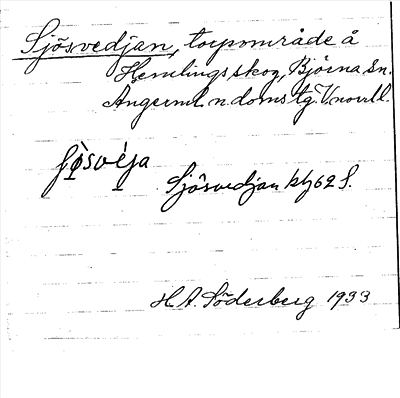 Sjösvedjan, torpområde å
Hemlings skog, Björna sn.
Ångerml. n. doms tg. V.norrll.
Sjösvedjan blj 62 S.
H. A. Söderberg 1933